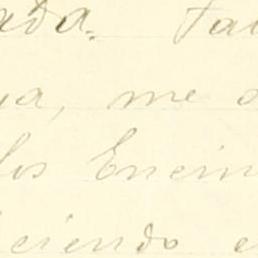 ada. Ta
ya, me
los Encin
ciendo e